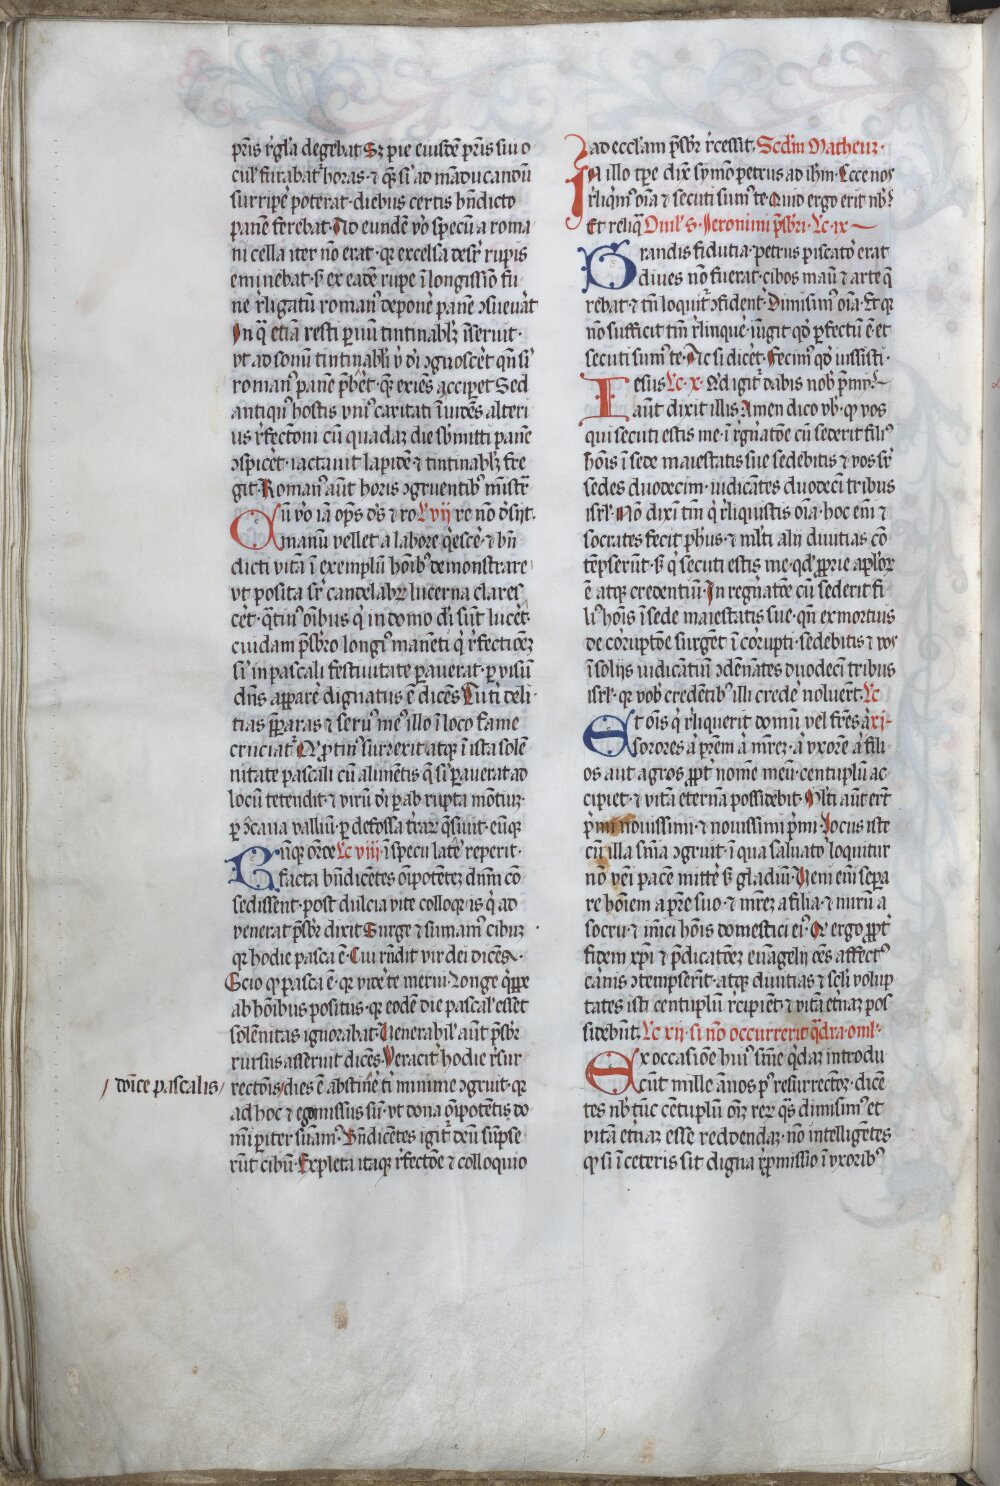 pris r̄gl'a degebat Sꝫ pie eiusdē pris sui o
cul' furabat' horas · ⁊ qͣ si ad māducandū
surripe' poterat · diebus certis bn̄dicto
panē ferebat · Ad eundē v̊o specū a roma
ni cella iter nō erat · qꝛ excelsa desr̄ rupis
eminebat · sꝫ ex eadē rupe ī longissīo fu
ne r̄ligatū romanꝰ depone' panē ↄsueuāt
In q̊ etiā resti ꝑuū tintinablꝫ īseruit ·
vt ad sonū tintinabli v̾ dī ↄgnosce't qn̄ si'
romanꝰ panē p̄be't · quē exiēs accipet Sed
antiquꝰ hostis vnīꝰ caritati īuidēs alteri
us r̄fectōni cū quadaꝫ die sb̾mitti panē
ↄspice't · iactauit lapidē · ⁊ tintinablꝫ fre
git · Romanꝰ aūt horis ↄgruentibꝰ mīstr̄
Cū v̊o iā op̄s d̄s ⁊ ro Lc̄ vij ro nō d̾sijt ·
manū vellet a labore q̾esce' · ⁊ bn̄
dicti vitā ī exemplū hoībꝰ demonstrare
vt posita sr̄ candelabrꝫ lucerna clares
ce't · qͣtinꝰ oībus q̇ in domo dī sūt luce't ·
cuidam p̄sbr̄o longīꝰ manēti q̇ r̄fectioēꝫ
si' in pascali festiuitate parauerat · ꝑ visū
dn̄s appare' dignatus ē dicēs Tu ti' deli ·
tias p̄paras ⁊ seruꝰ meꝰ illo ī loco fame
cruciat' Qͥ ꝓtinꝰ surrexit atqꝫ ī ista solē
nitate pascali cū alimētis q̄ si' ꝑauerat ad
locū tetendit · ⁊ virū dī ꝑ abrupta mōtiuꝫ ·
ꝑ ↄcaua valliū · ꝑ defossa t'raꝝ q̄siuit · eūqꝫ
Cūqꝫ or̄oe Lc̄ viij · ī specu late' reperit ·
facta bn̄dicētes oīpotētēꝫ dnīm cō
sedissent · post dulcia vite colloqͥa is q̇ ad
venerat p̄sbr̄ dixit Surge ⁊ sumamꝰ cibuꝫ ·
qꝛ hodie pasca ē · Cui rn̄dit vir dei dicēs ·
Scio qꝙ pasca ē · qꝛ vide' te merui · Longe q̾ppe
ab hoībus positus · qꝛ eodē die pascal' esset
solēnitas ignorabat · Venerabil' aūt p̄sbr̄
rursus asseruit dicēs · Veracit' hodie r̄sur
rectōis / dies ē abstine' ti' minime ↄgruit · qꝛ
/ dn̄ice pascalis /
ad hoc ⁊ ego missus sū · vt dona oīpotētis do
mī pit'er sūamꝰ · Bn̄dicētes igit' deū sūpse
rūt cibū · Expleta itaqꝫ r̄fectōe ⁊ colloquio
ad eccl'am p̄sbr̄ r̄cessit · Scd̄m Matheuꝫ ·
In illo tp̄e dix' symō petrus ad ih̄m · Ecce nos
r̄liqͥmꝰ oīa ⁊ secuti sumꝰ te Quid ergo erit nb̾ꝭ
Et reliq̄ Omͥl' s · Jeronimi p̄sbr̄i · Lc̄ · ix —
Grandis fidutia · petrus piscator̄ erat
diues nō fuerat · cibos manu ⁊ arte q̄
rebat · ⁊ tn̄ loquit' ↄfident' · Dimisimꝰ oīa · Et qꝛ
nō sufficit tm̄ r̄linque' · iūgit qd̾ ꝑfectū ē et
secuti sumꝰ te · Ac si dice't · Fecimꝰ qd̾ iussisti ·
Iesus Lc̄ · x · Qͥd igit' dabis nob' p̄mij ·
aūt dixit illis Amen dico vb̾ · qꝙ vos
qui secuti estis me · ī r̄gn̄atōe cū sederit filiꝰ
hōis ī sede maiestatis sue sedebitis ⁊ vos sr̄
sedes duodecim · iudicātes duodeci tribus
isrl' · Nō dixi tm̄ q̇ r̄liquistis oīa · hoc enī ⁊
socrates fecit ph̄us · ⁊ ml'ti alij diuitias cō
tēpserūt · sꝫ q̇ secuti estis me · qd̾ ꝓprie apl'oꝝ
ē atqꝫ credentiū · In regn̄atōe cū sederit fi
liꝰ hōis ī sede maiestatis sue · qn̄ ex mortuis
de corruptōe surgēt ī corrupti · sedebitis ⁊ vos
ī solijs iudicātiū ↄdēnātes duodeci tribus
isrl' · qꝛ vob' credētibꝰ illi crede' noluer̄t · Lc̄
Et oīs q̇ r̄liquerit domū vel frēs à xi ·
sorores à prēm à mr̄eꝫ · à vxorē à fili ·
os aut agros ꝓpt' nomē meū · centuplū ac
cipiet · ⁊ vitā eternā possidebit · Ml'ti aūt erūt
p̄mi nouissimi · ⁊ nouissimi p̄mi · Locus iste
cū illa sīnia ↄgruit · ī qua saluator̄ loquitur
nō vēi pacē mitte' sꝫ gladiū · Veni enī sepa
re hoīem a pr̄e suo · ⁊ mr̄eꝫ a filia · ⁊ nurū a
socru · ⁊ inīci hōis domestici eiꝰ · Qͥ ergo ꝓpt'
fidem xp̄i ⁊ p̄dicatōeꝫ euāgelij oēs affectꝰ
carnis ↄtempserīt · atqꝫ diuitias ⁊ scl'i volup
tates isti centuplū r̄cipiēt · ⁊ vitā et'naꝫ pos
sidebūt · Lc̄ xij · si nō occurrerit q̄dra · omͥl' ·
Ex occasiōe huiꝰ sn̄ie q̾daꝫ introdu
cūt mille ānos pꝰ resurrectōꝫ · dicē
tes nb̾ tūc cētuplū oīꝫ reꝝ qͣs dimisimꝰ et
vitā et'naꝫ esse reddendaꝫ · nō intelligētes
qꝙ si ī ceteris sit digna r̄p̄missio ī vxoribꝰ